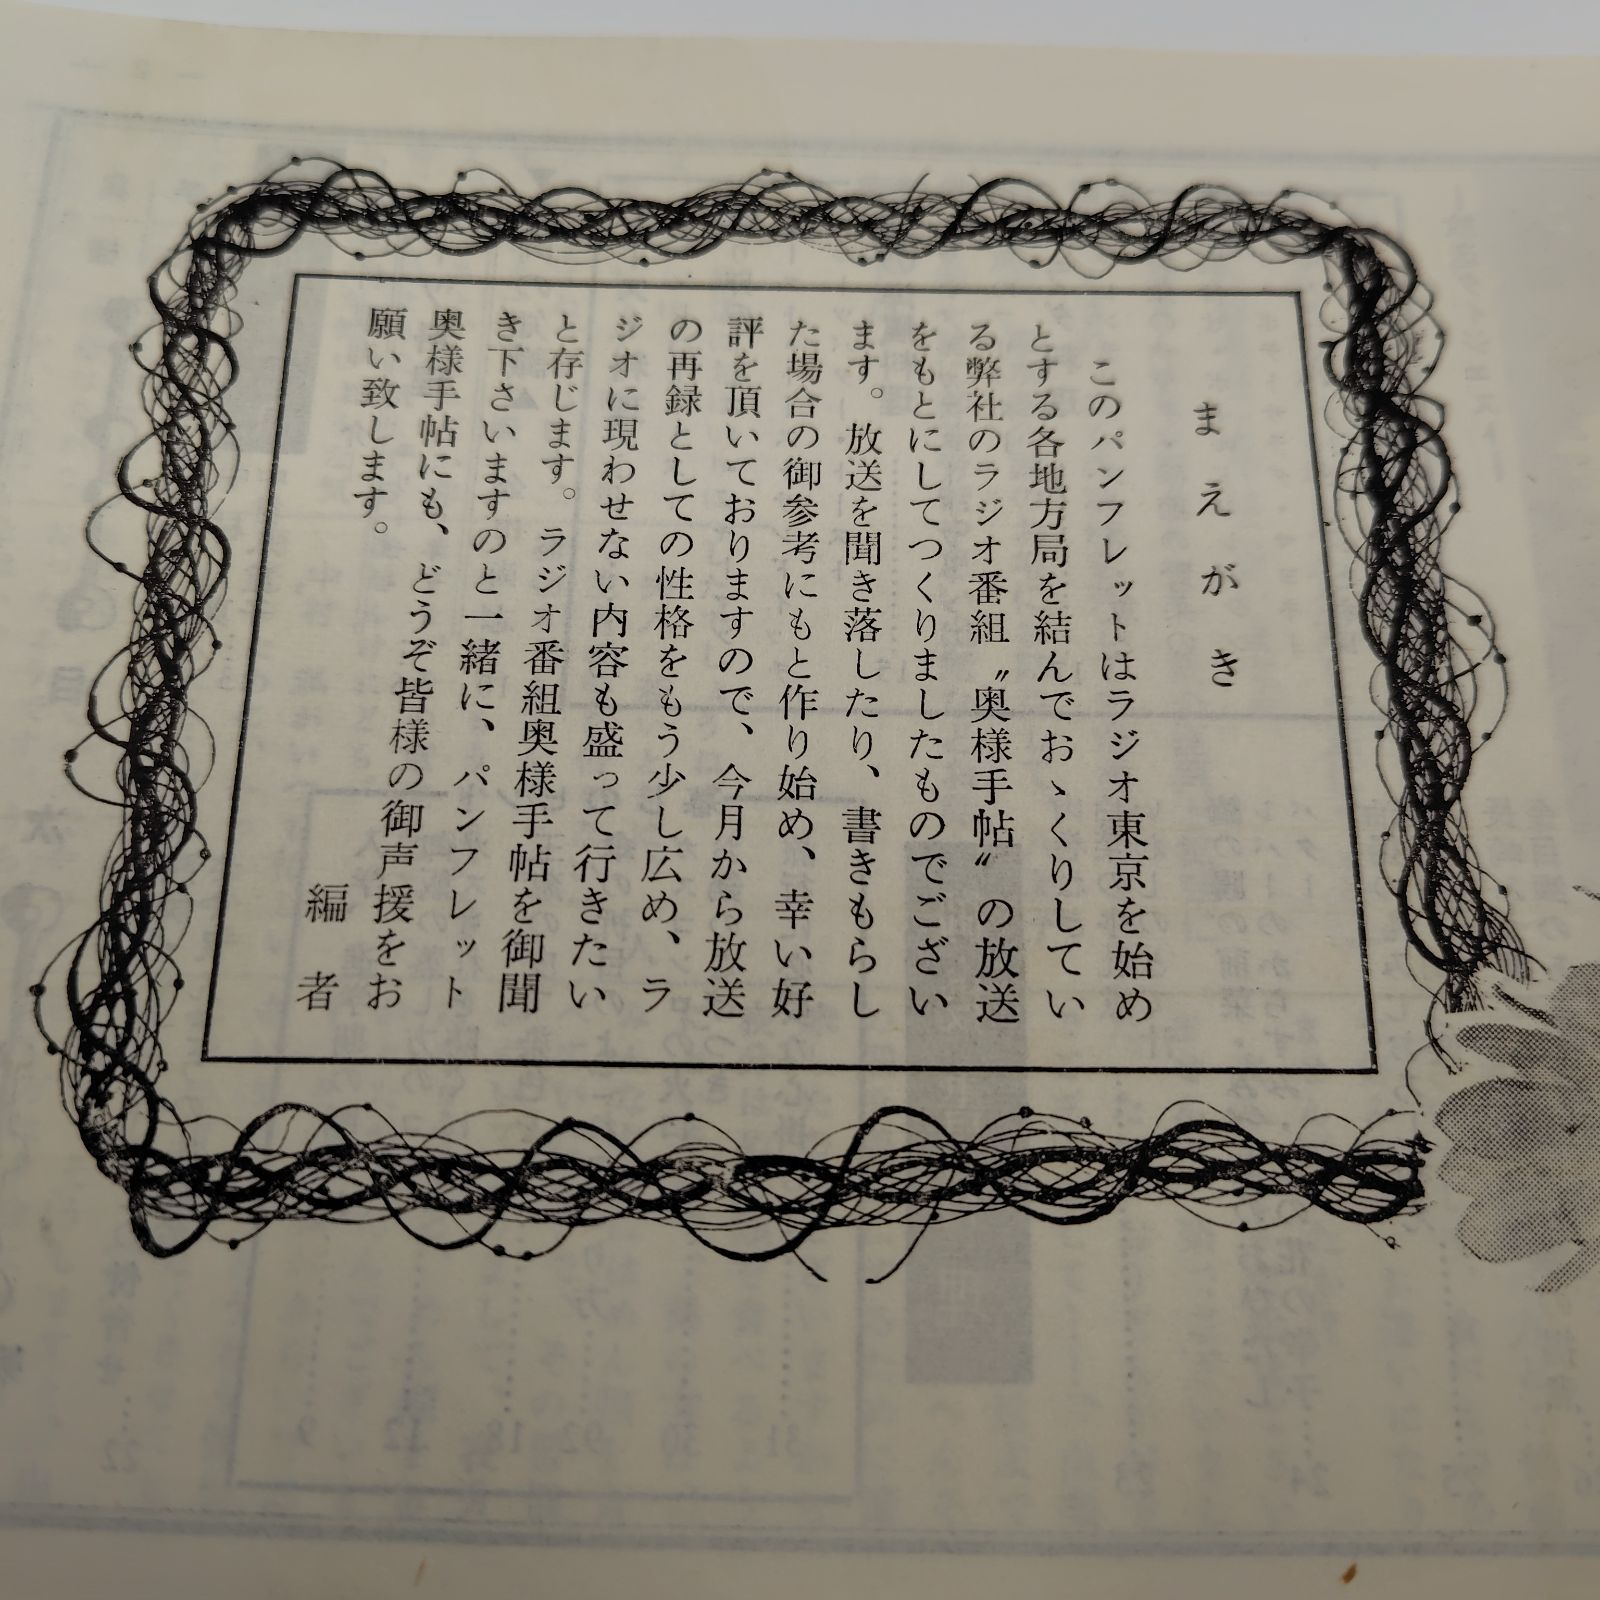 まえがき
このパンフレットはラジオ東京を始め
とする各地方局を結んでおゝくりしてい
る弊社のラジオ番組〝奥様手帖〟の放送
をもとにしてつくりましたものでござい
ます。放送を聞き落したり、書きもらし
た場合の御参考にもと作り始め、幸い好
評を頂いておりますので、今月から放送
の再録としての性格をもう少し広め、ラ
ジオに現わせない内容も盛って行きたい
と存じます。ラジオ番組奥様手帖を御聞
き下さいますのと一緒に、パンフレット
奥様手帖にも、どうぞ皆様の御声援をお
願い致します。
編者